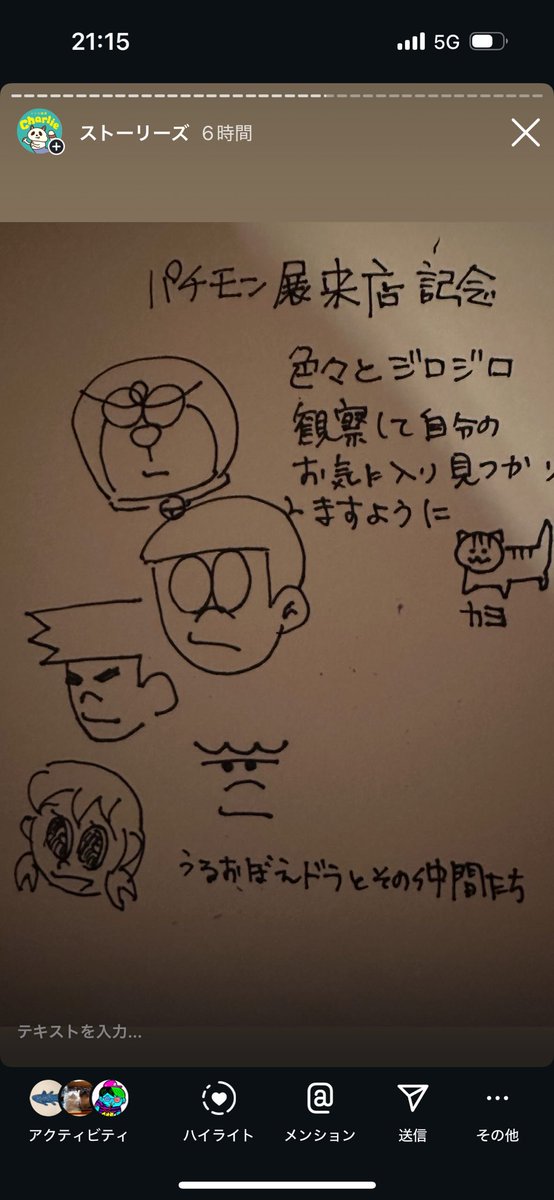 21:15
5G
Charlie
ストーリーズ 6時間
パチモン展来店記念
色々とジロジロ
観察して自分の
お気に入り見つかり
ますように
カヨ
うるおぼえドラとその仲間たち
テキストを入力...
アクティビティ
ハイライト
メンション
送信
その他